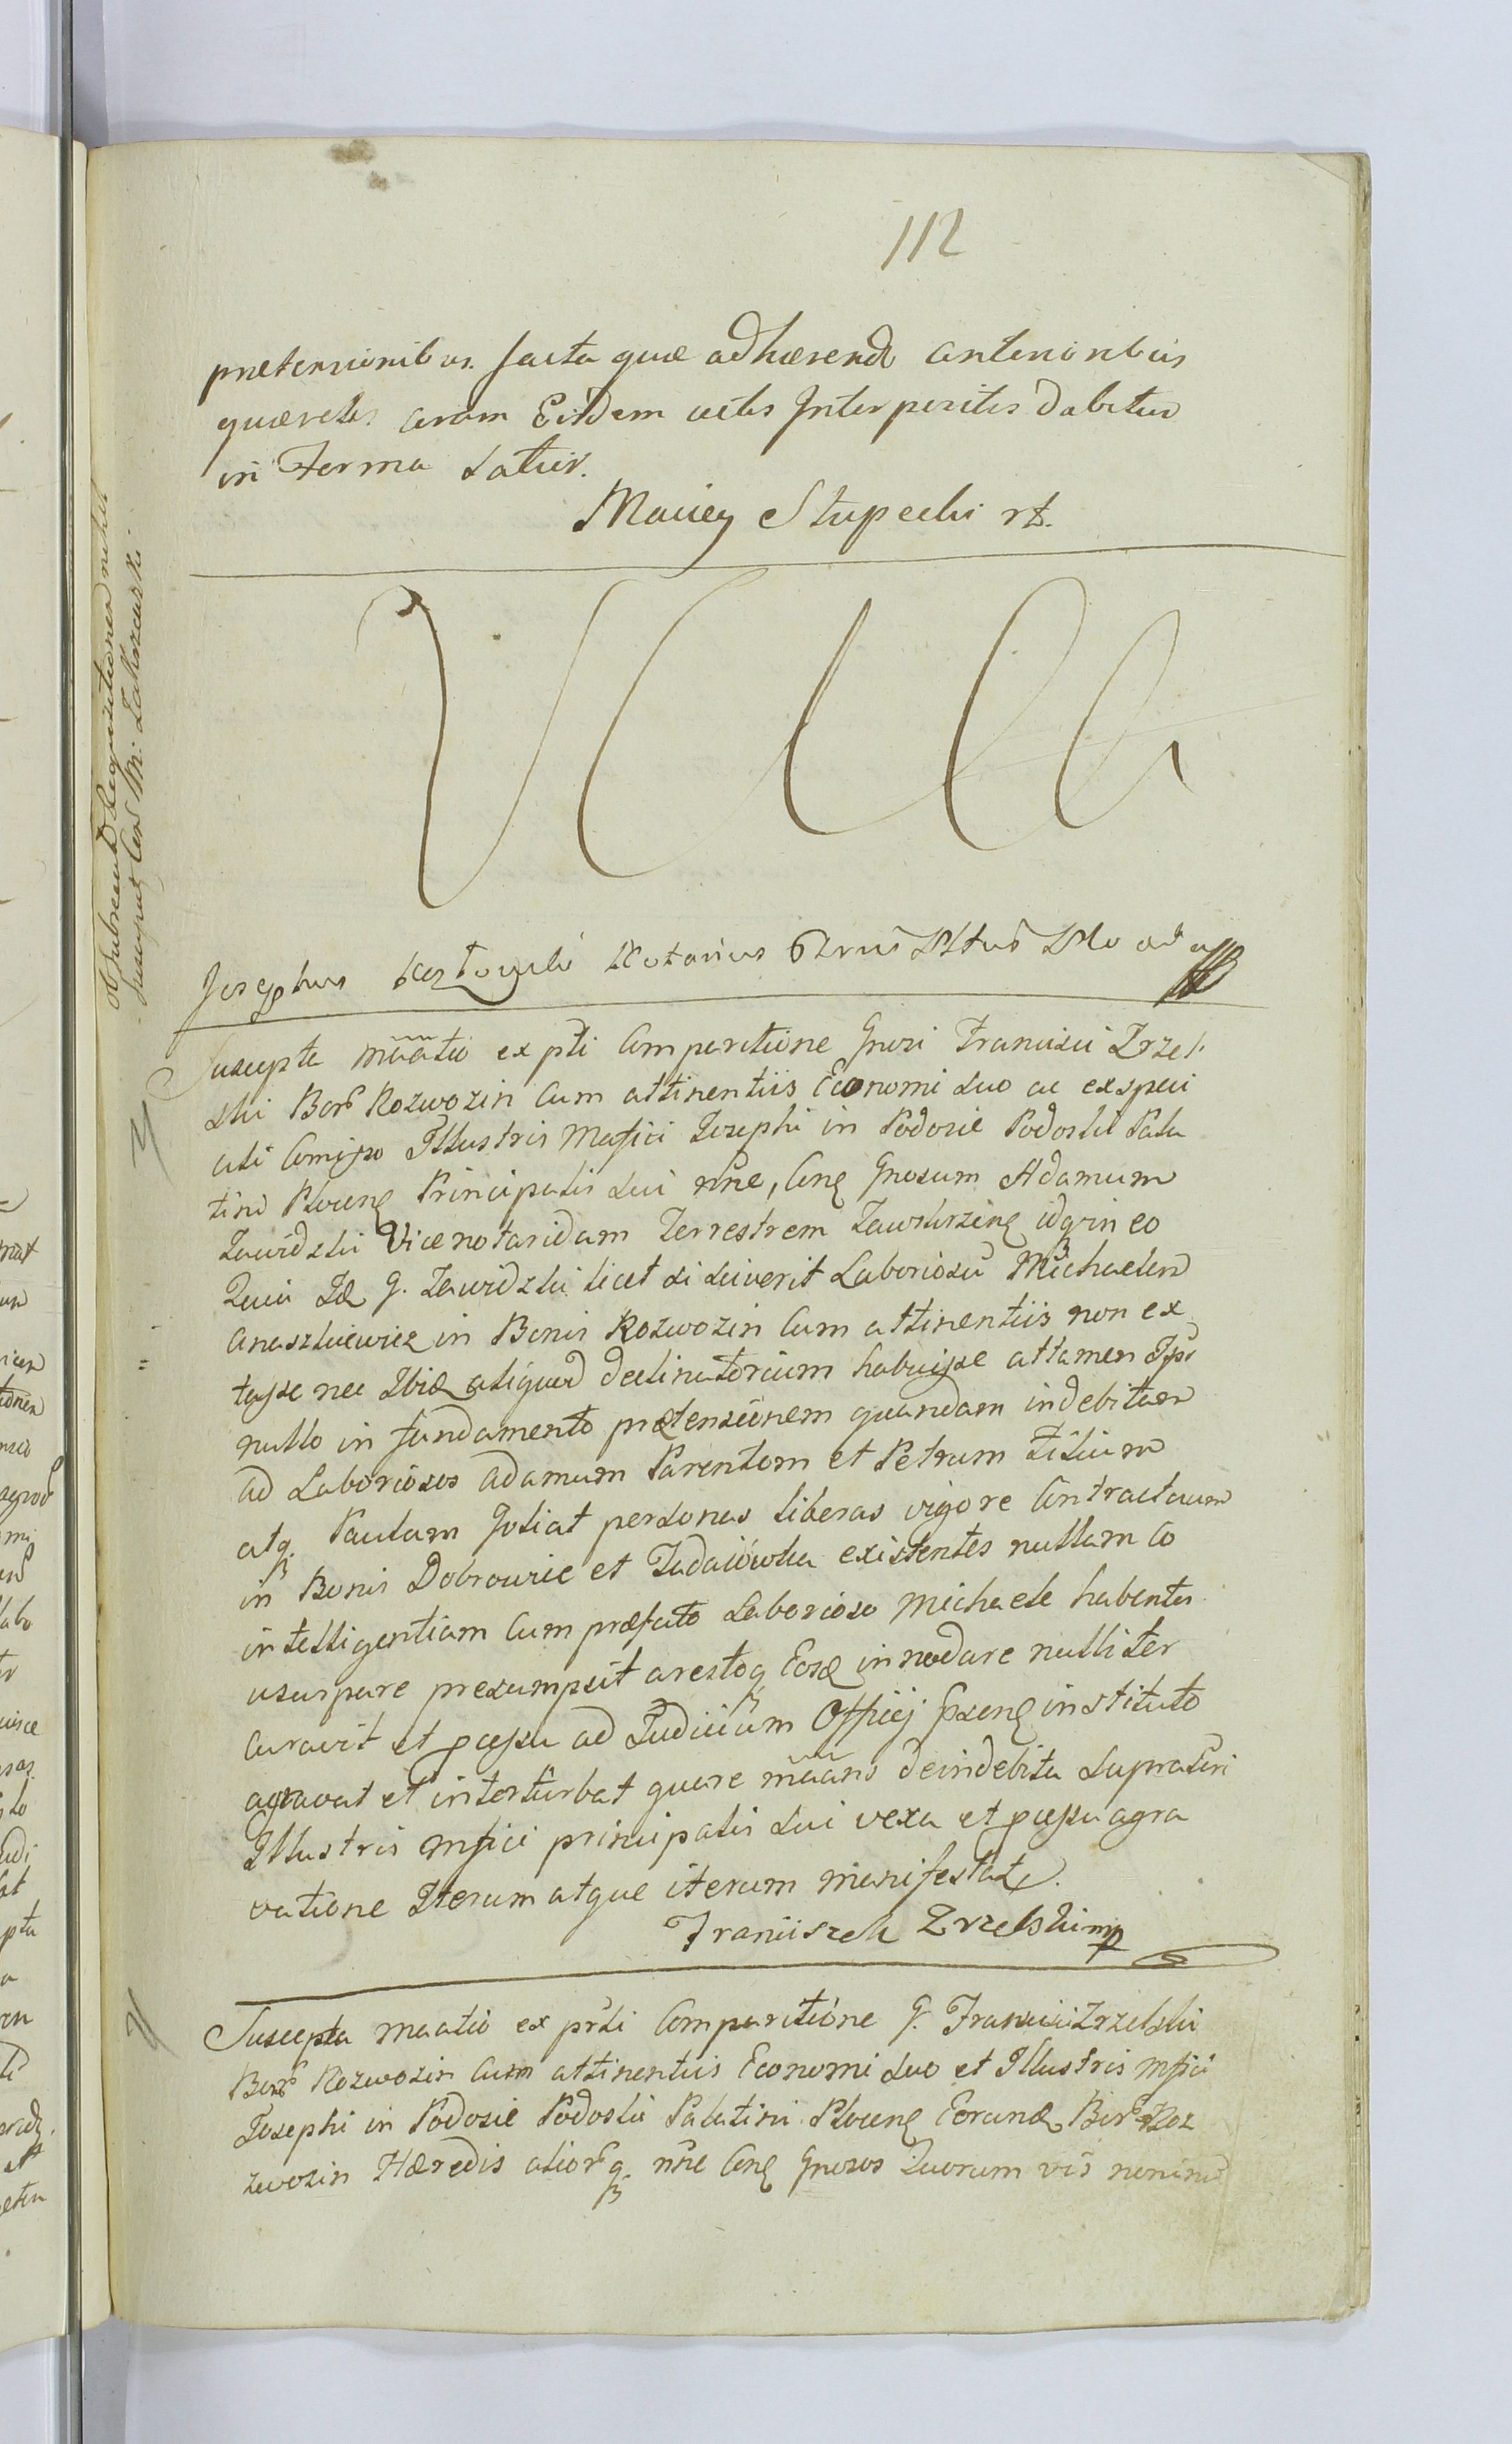 112
prætensionibus. facta quæ adhærendo anterioribus
quærelis coram Eisdem actis Interpositis dabitur
in Forma Latiur.
Maciey Słupecki rt.
Josephus Notarius
ob Subreand Requisitionem nihil
suscepit Cons M: Zakrzewski
Suscepta mãatio ex pti Comparitione Gnosi Francisci Zrzel
ski Bonõ Rozwozin Cum attinentiis Economi suo ac ex speci
ali Comisso Illustris Mgfici Josephi in Podosie Podoski Pala
tini Plocens Principalis sui nñe, Cons Gnosum Adamum
Zawidzki Vicenotarium Terrestrem Zawskrzens idq in eo
Quia Idẽ G. Zawidzki licet si sciverit Laboriosũ Michaelem
Anaszkiewicz in Bonis Rozwozin Cum attinentiis non ex
tasse nec Ibidẽ aliquod declinatorium habuisse attamen Ipse
nullo in fundamento prætensionem quandam indebitam
ad Laboriosos Adamum Parentem et Petrum Filium
atq Paulum Joliat personas liberas vigore Contractuum
in Bonis Dobrowie et Judaiowka existentes nullam Co
intelligentiam Cum præfato Laborioso Michaele habentes
usurpare presumpsit arestoq Eosdẽ innodare nulliter
curavit et processu ad Judicium Officij Psens instituto
agravat et interturbat quare mããns de indebita supratiri
Illustris Mgfici principalis sui vexa et processu agra
vatione Iterum atque iterum manifestat.
Franciszek Zrzelski mp
Suscepta maatio ex pnti Comparitione G. Francisci Zrzelski
Bonõ Rozwozin Cum attinentiis Economi suo et Illustris Mgfici
Josephi in Podosie Podoski Palatini Plocens Eorundẽ Bonõ Roz
zwozin Hæredis aliorõq nñe Cons Gnosos Quorum vis nomina